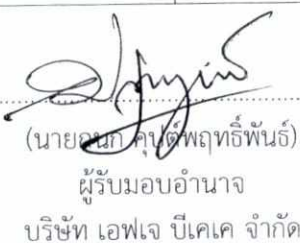 (นายอนก คุปต์พฤทธิ์พันธ์)
ผู้รับมอบอำนาจ
บริษัท เอฟเจ บีเคเค จำกัด